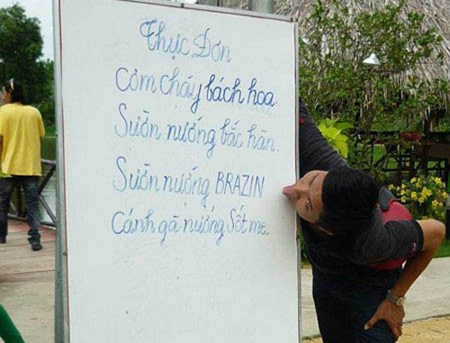 Thực Đơn
Cơm cháy bách hoa.
Sườn nướng bắc hàn.
Sườn nướng BRAZIN
Cánh gà nướng Sốt me.